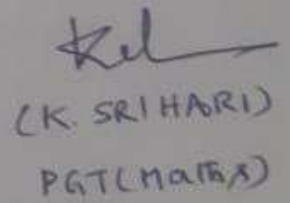 (K. SRIHARI)
PGT(Maths)